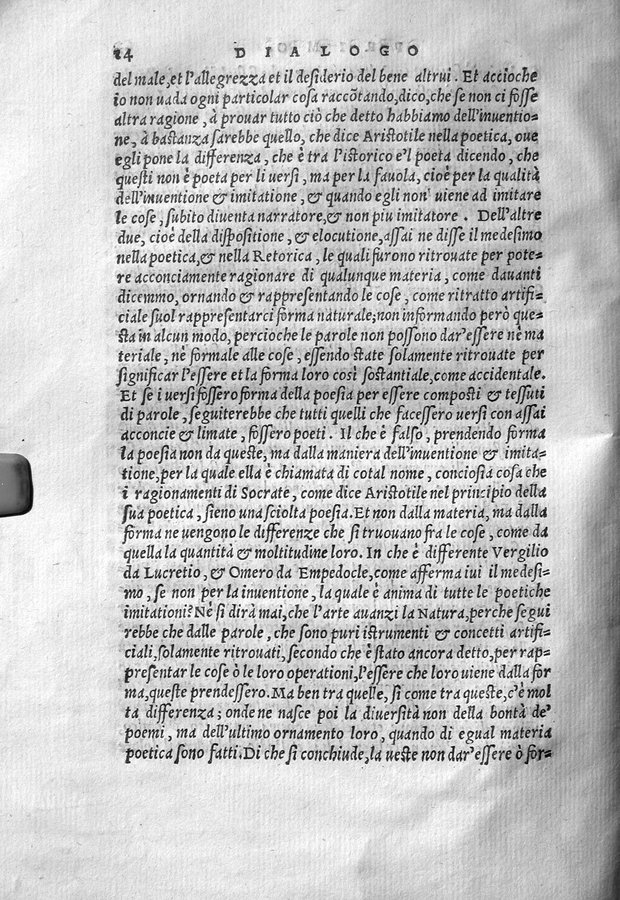 24 DIALOGO
del male, et l'allegrezza et il desiderio del bene altrui. Et accioche
io non uada ogni particolar cosa raccõtando, dico, che se non ci fosse
altra ragione, à prouar tutto ciò che detto habbiamo dell'inuentio=
ne, à bastanza sarebbe quello, che dice Aristotile nella poetica, oue
egli pone la differenza, che è tra l'istorico e'l poeta dicendo, che
questi non è poeta per li uersi, ma per la fauola, cioè per la qualità
dell'inuentione & imitatione, & quando egli non uiene ad imitare
le cose, subito diuenta narratore, & non piu imitatore. Dell'altre
due, cioè della dispositione, & elocutione, assai ne disse il medesimo
nella poetica, & nella Retorica, le quali furono ritrouate per pote=
re acconciamente ragionare di qualunque materia, come dauanti
dicemmo, ornando & rappresentando le cose, come ritratto artifi=
ciale suol rappresentarci forma naturale; non informando però que=
sta in alcun modo, percioche le parole non possono dar'essere nè ma
teriale, nè formale alle cose, essendo state solamente ritrouate per
significar l'essere et la forma loro così sostantiale, come accidentale.
Et se i uersi fossero forma della poesia per essere composti & tessuti
di parole, seguiterebbe che tutti quelli che facessero uersi con assai
acconcie & limate, fossero poeti. Il che è falso, prendendo forma
la poesia non da queste, ma dalla maniera dell'inuentione & imita=
tione, per la quale ella è chiamata di cotal nome, conciosia cosa che
i ragionamenti di Socrate, come dice Aristotile nel principio della
sua poetica, sieno una sciolta poesia. Et non dalla materia, ma dalla
forma ne uengono le differenze che si truouano fra le cose, come da
quella la quantità & moltitudine loro. In che è differente Vergilio
da Lucretio, & Omero da Empedocle, come afferma iui il medesi=
mo, se non per la inuentione, la quale è anima di tutte le poetiche
imitationi? Nè si dirà mai, che l'arte auanzi la Natura, perche segui
rebbe che dalle parole, che sono puri istrumenti & concetti artifi=
ciali, solamente ritrouati, secondo che è stato ancora detto, per rap=
presentar le cose ò le loro operationi, l'essere che loro uiene dalla for
ma, queste prendessero. Ma ben tra quelle, si come tra queste, c'è mol
ta differenza; onde ne nasce poi la diuersità non della bontà de'
poemi, ma dell'ultimo ornamento loro, quando di egual materia
poetica sono fatti. Di che si conchiude, la ueste non dar'essere ò for=